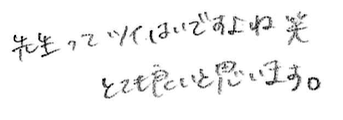 先生ってツイはいですよね笑
とても良いと思います。